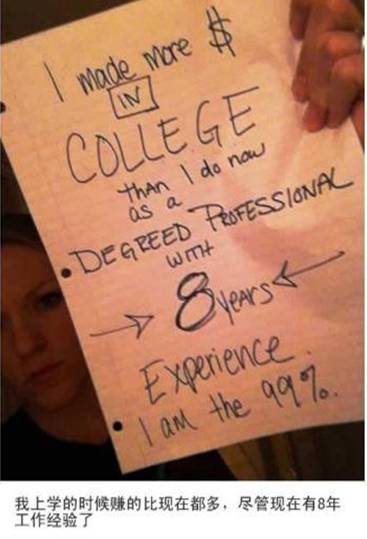 I made more $
IN
COLLEGE
than I do now
as a
DEGREED PROFESSIONAL
WITH
8 years
Experience.
I am the 99%.
我上学的时候赚的比现在都多，尽管现在有8年
工作经验了